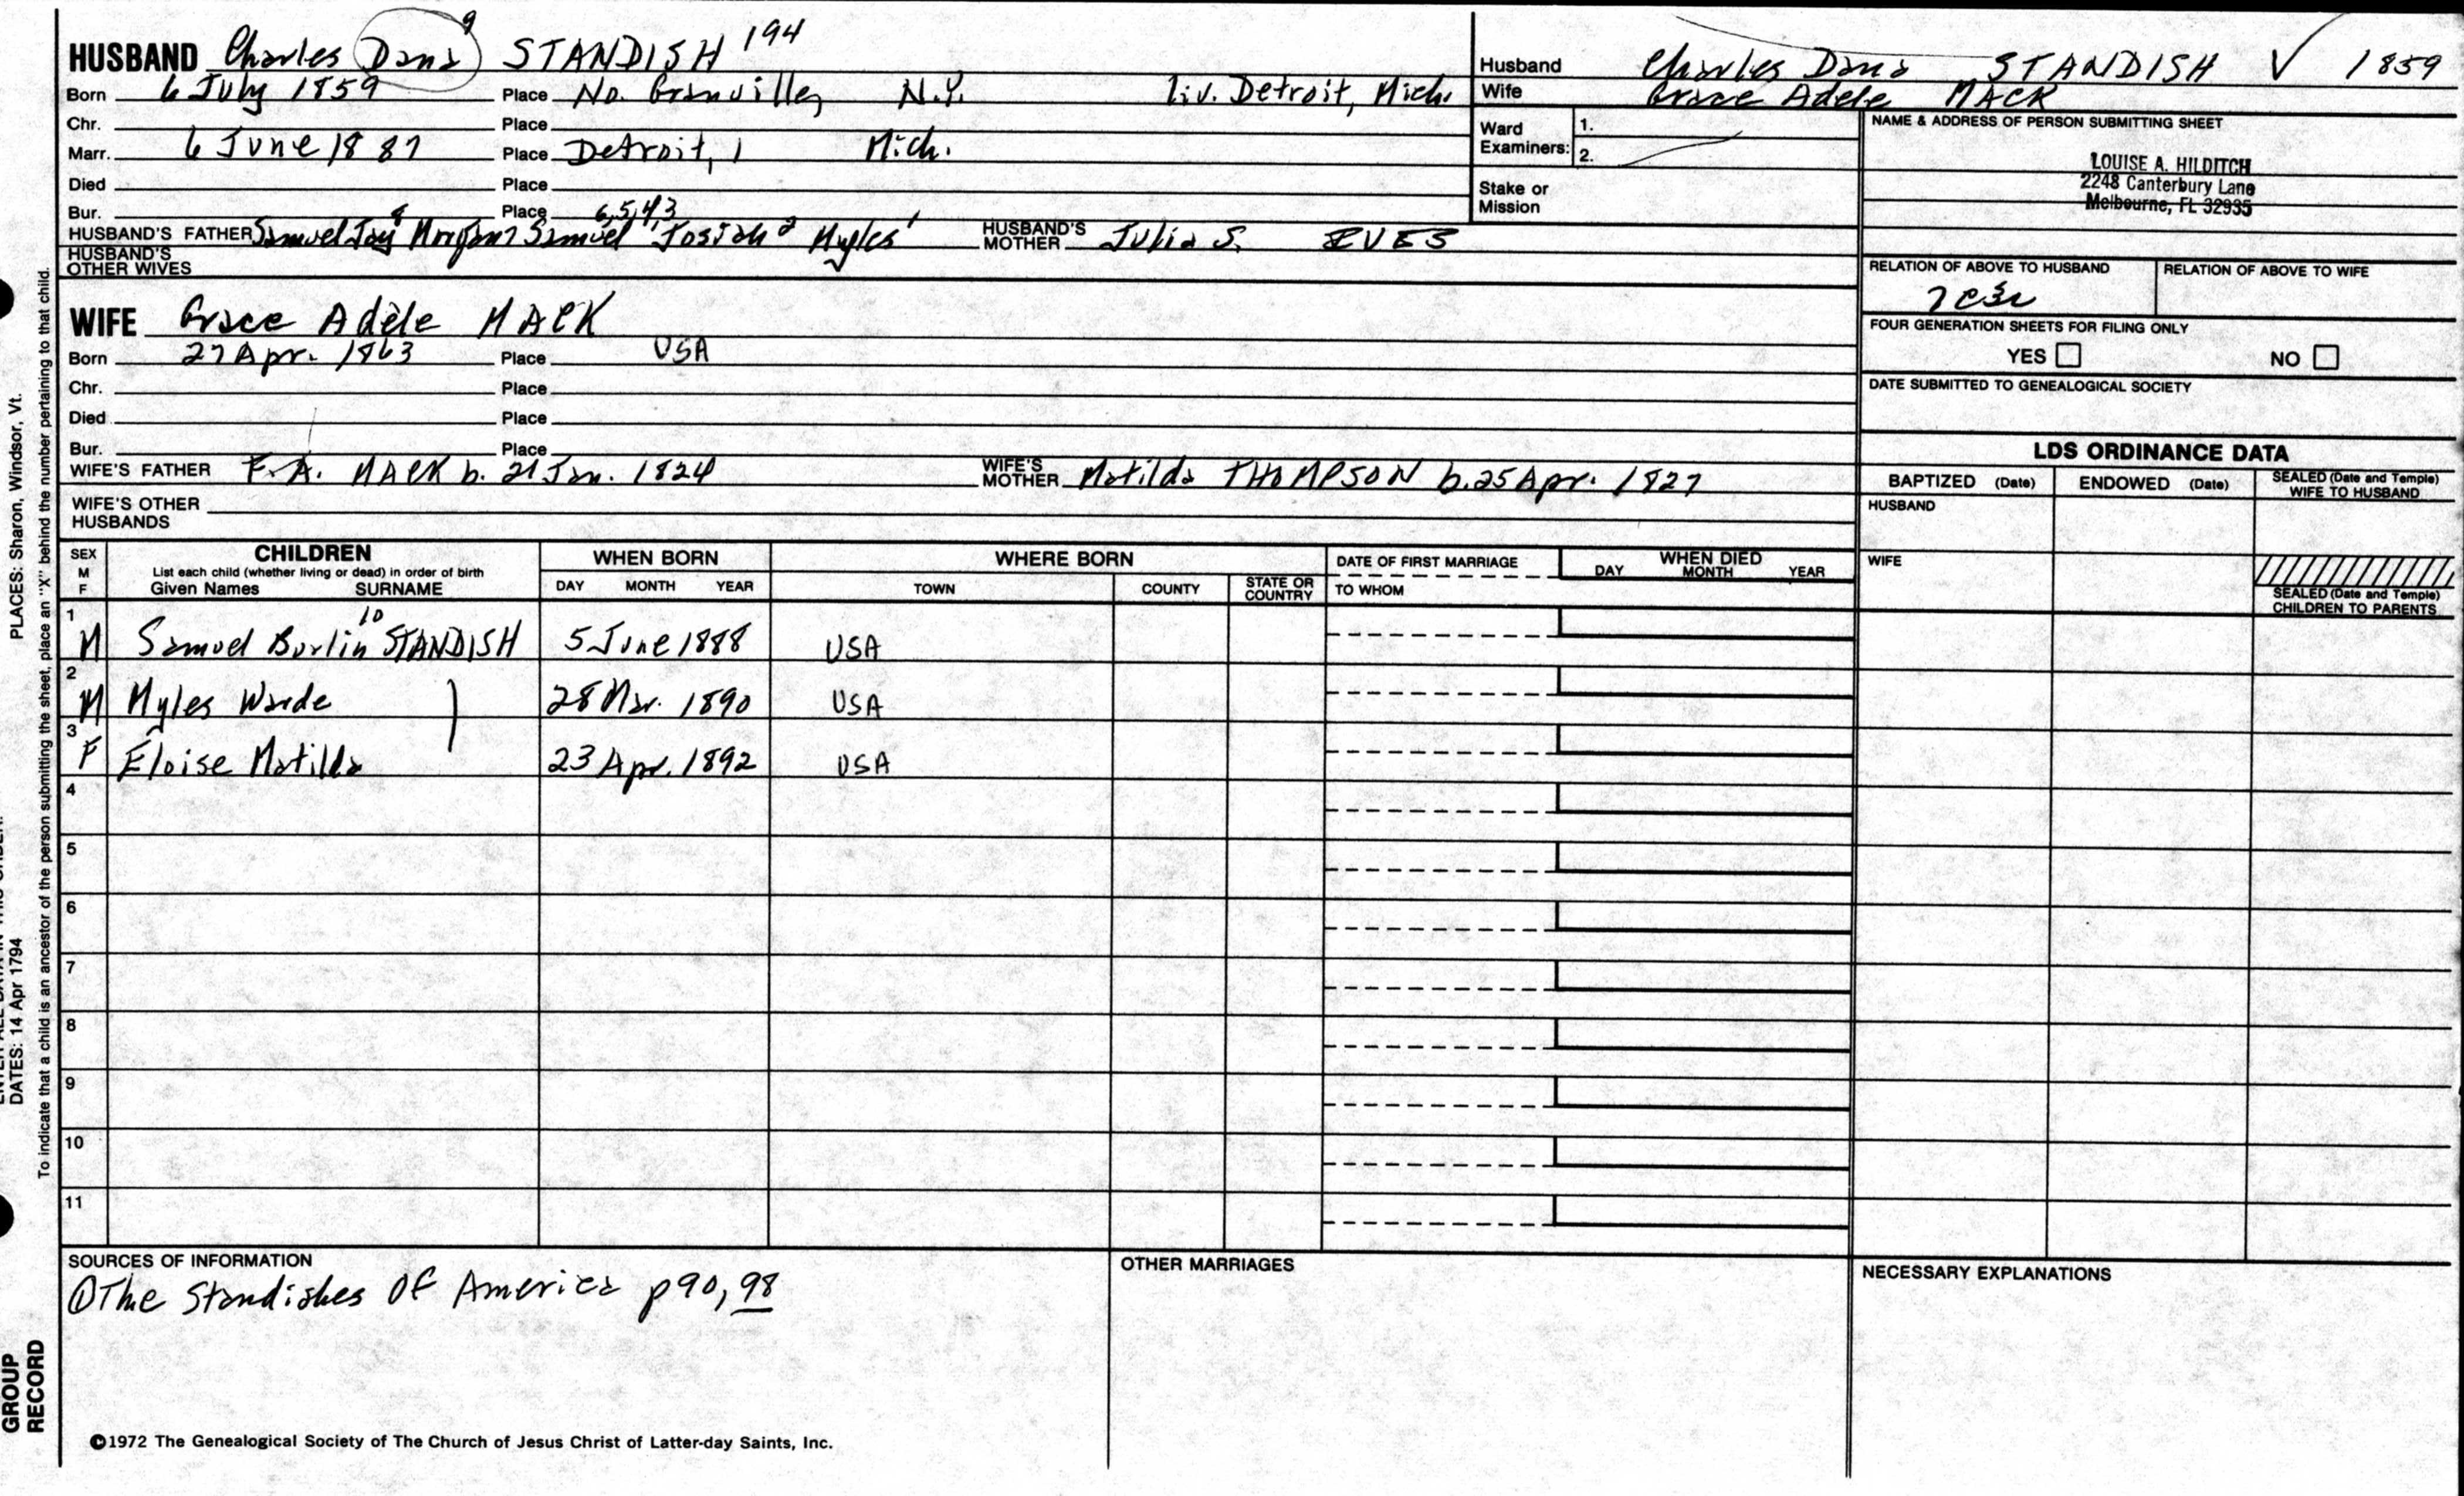 HUSBAND Charles Dana⁹ STANDISH 194
Born 6 July 1859 Place No. Granville, N.Y. liv. Detroit, Mich.
Chr. Place
Marr. 6 June 1887 Place Detroit, Mich.
Died Place
Bur. Place
HUSBAND'S FATHER Samuel Jay⁸ Morgan⁷ Samuel⁶,⁵,⁴,³ Josiah² Myles¹ HUSBAND'S MOTHER Julia S. EVES
HUSBAND'S OTHER WIVES
Husband Charles Dana STANDISH V 1859
Wife Grace Adele MACK
Ward Examiners: 1.
2.
Stake or Mission
NAME & ADDRESS OF PERSON SUBMITTING SHEET
LOUISE A. HILDITCH
2248 Canterbury Lane
Melbourne, FL 32935
RELATION OF ABOVE TO HUSBAND RELATION OF ABOVE TO WIFE
FOUR GENERATION SHEETS FOR FILING ONLY
YES NO
DATE SUBMITTED TO GENEALOGICAL SOCIETY
WIFE Grace Adele MACK
Born 27 Apr. 1863 Place USA
Chr. Place
Died Place
Bur. Place
WIFE'S FATHER F.A. MACK b. 21 Jan. 1824 WIFE'S MOTHER Matilda THOMPSON b. 25 Apr. 1827
WIFE'S OTHER HUSBANDS
LDS ORDINANCE DATA
BAPTIZED (Date) ENDOWED (Date) SEALED (Date and Temple) WIFE TO HUSBAND
HUSBAND
WIFE
SEALED (Date and Temple) CHILDREN TO PARENTS
SEX M F CHILDREN WHEN BORN WHERE BORN DATE OF FIRST MARRIAGE WHEN DIED
List each child (whether living or dead) in order of birth
Given Names SURNAME DAY MONTH YEAR TOWN COUNTY STATE OR COUNTRY TO WHOM DAY MONTH YEAR
1 M Samuel Burlin¹⁰ STANDISH 5 June 1888 USA
2 M Myles Warde 28 Mar. 1890 USA
3 F Eloise Matilda 23 Apr. 1892 USA
4
5
6
7
8
9
10
11
SOURCES OF INFORMATION
① The Standishes Of America p 90, 98
OTHER MARRIAGES
NECESSARY EXPLANATIONS
©1972 The Genealogical Society of The Church of Jesus Christ of Latter-day Saints, Inc.
PLACES: Sharon, Windsor, Vt.
DATES: 14 Apr 1794
To indicate that a child is an ancestor of the person submitting the sheet, place an "X" behind the number pertaining to that child.
GROUP
RECORD